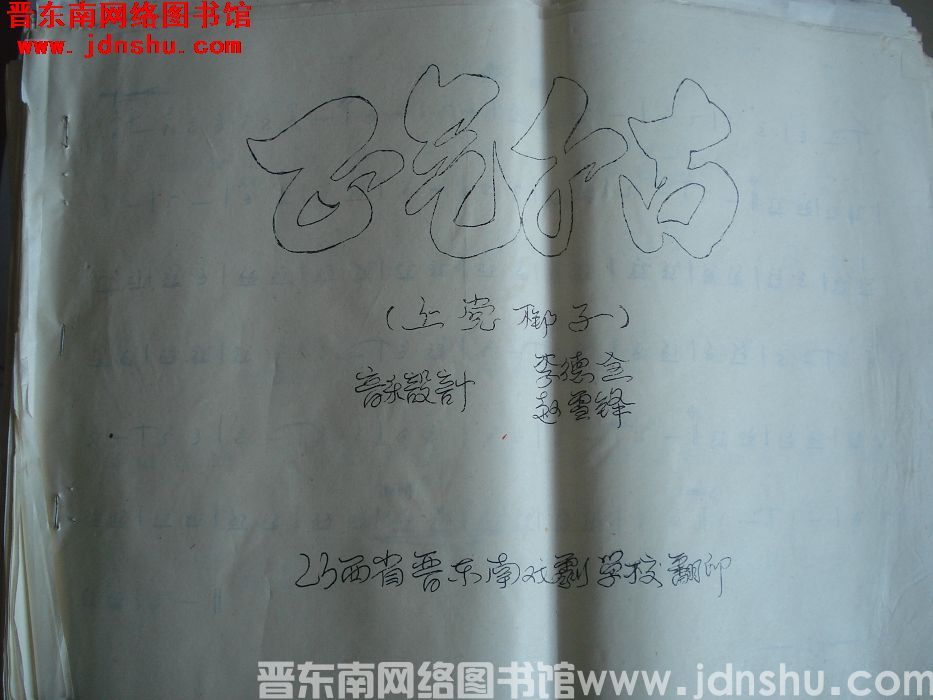 晋东南网络图书馆
www.jdnshu.com
正气千古
(上党梆子)
音乐設計 李德全
赵雪锋
山西省晋东南戏剧学校翻印
晋东南网络图书馆www.jdnshu.com